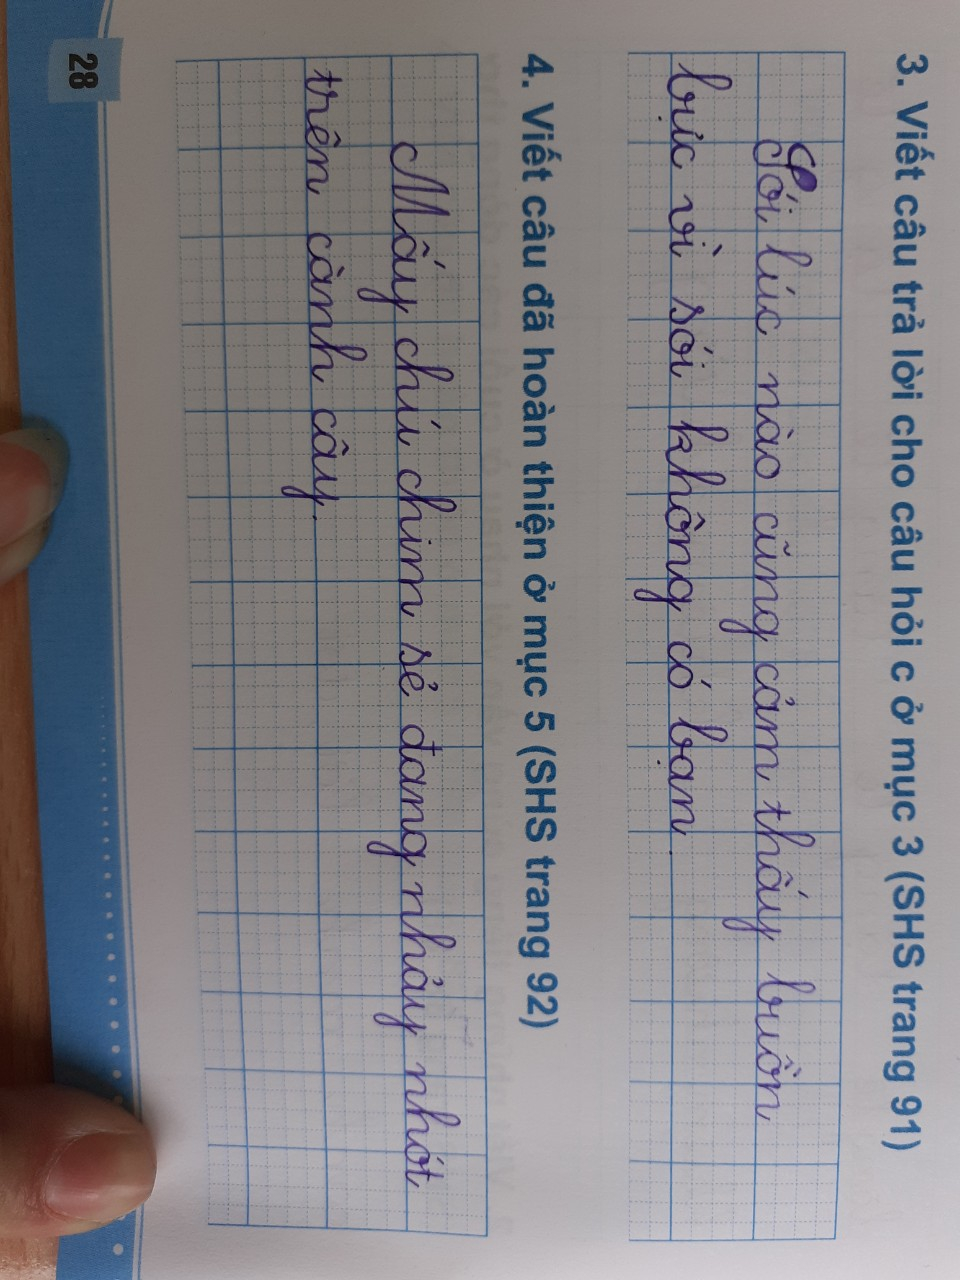 3. Viết câu trả lời cho câu hỏi c ở mục 3 (SHS trang 91)
Sói lúc nào cũng cảm thấy buồn
bực vì sói không có bạn.
4. Viết câu đã hoàn thiện ở mục 5 (SHS trang 92)
Mấy chú chim sẻ đang nhảy nhót
trên cành cây.
28